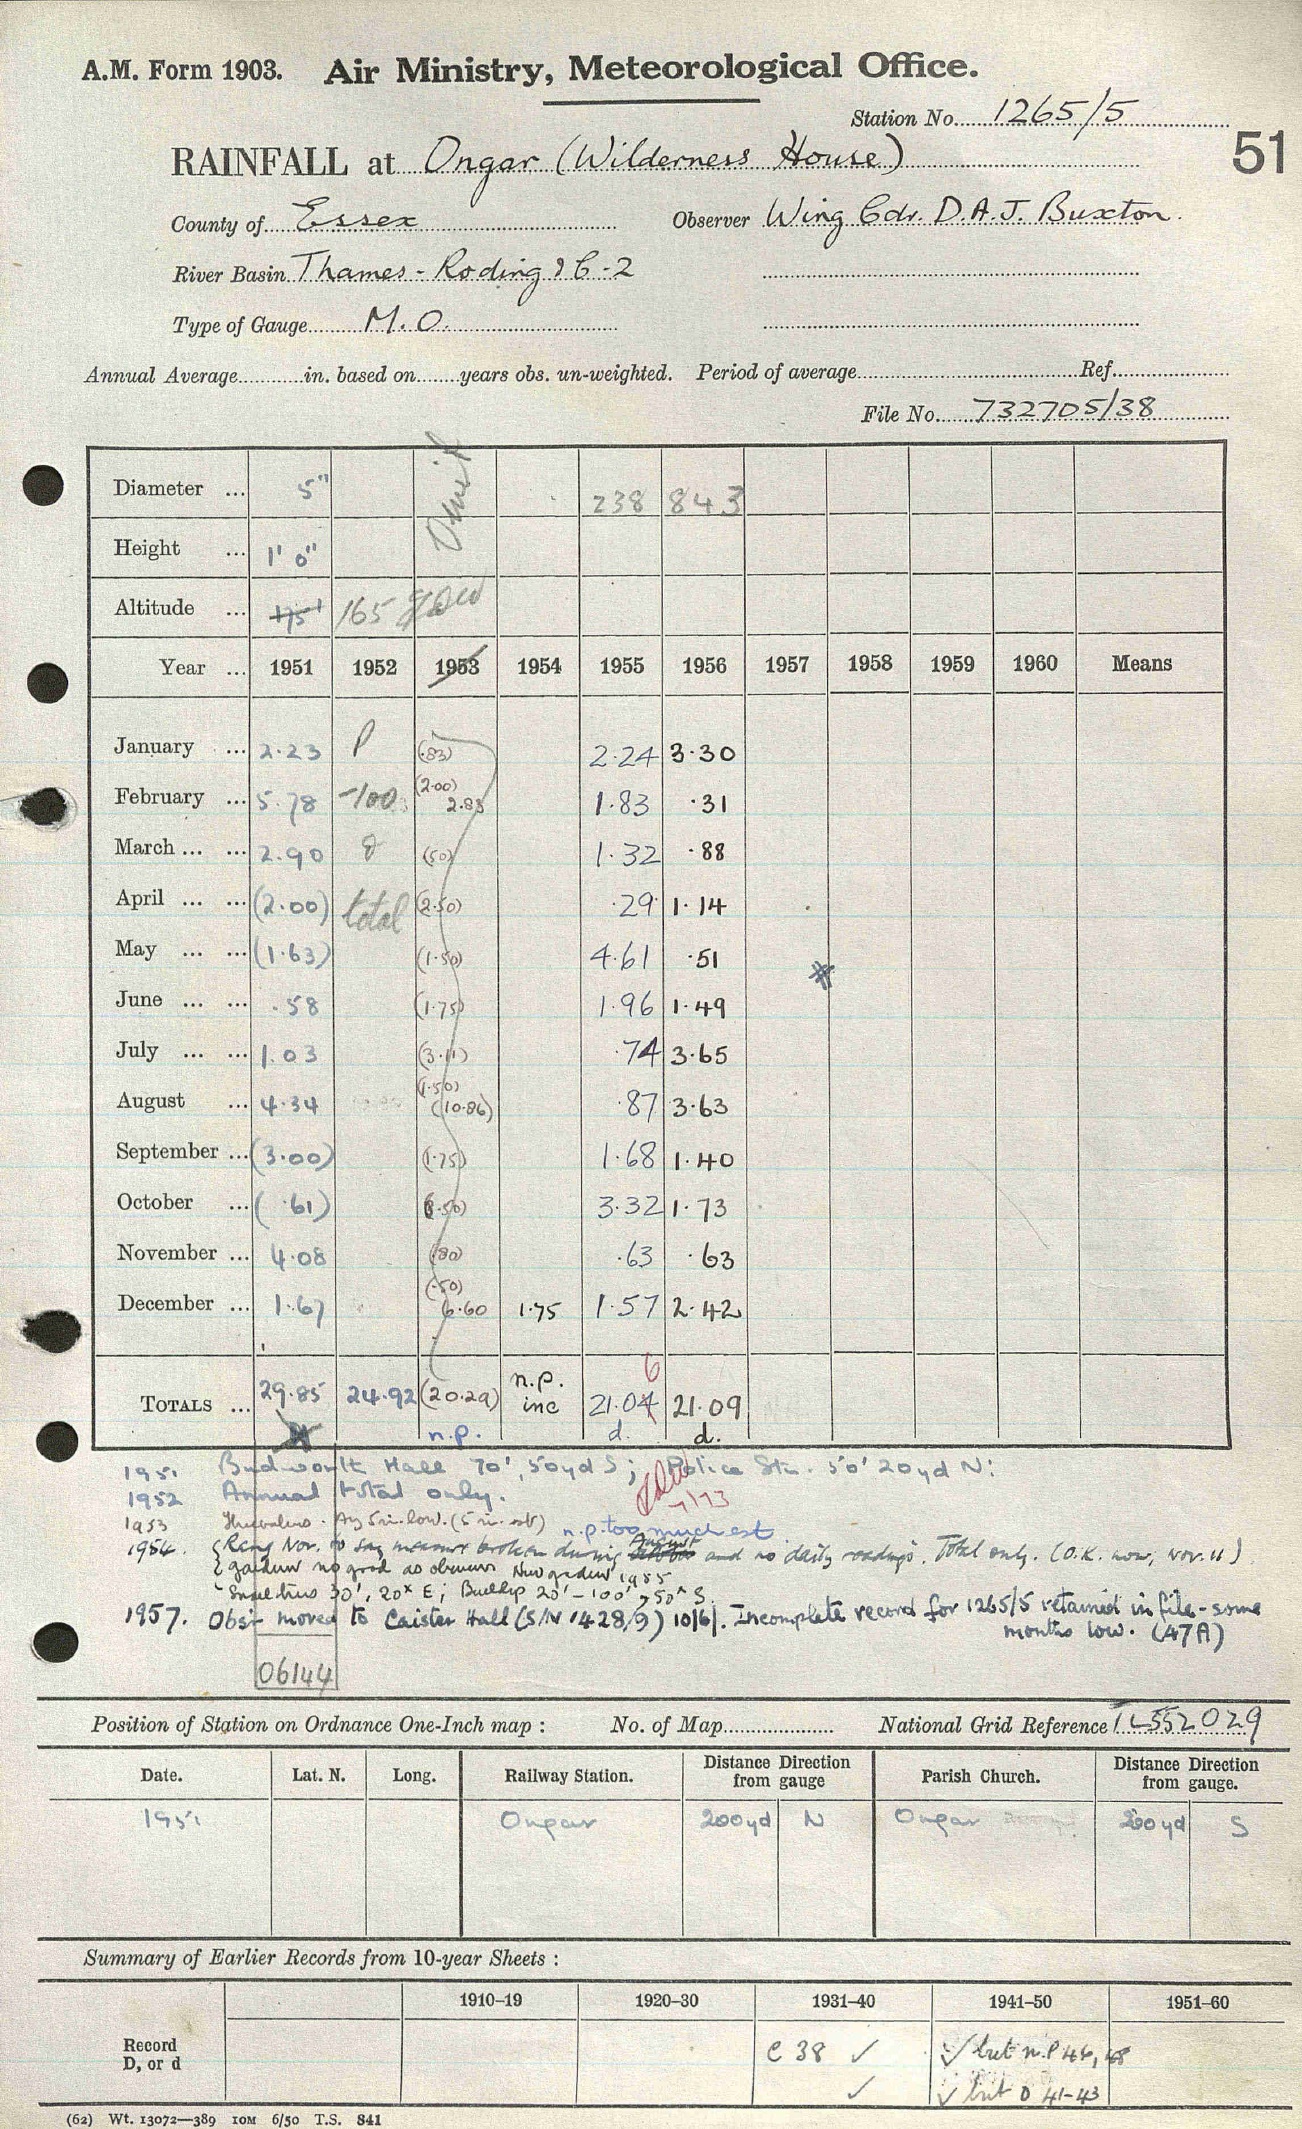 A.M. Form 1903. Air Ministry, Meteorological Office.
Station No. 1265/5
51
RAINFALL at Ongar (Wilderness House)
County of Essex Observer Wing Cdr. D.A.J. Buxton.
River Basin Thames - Roding 26-2
Type of Gauge M.O.
Annual Average in. based on years obs. un-weighted. Period of average Ref.
File No. 732705/38
Diameter ... 5" 238 843
Omit
Height ... 1' 0"
Altitude ... 175' 165
Year ... 1951 1952 1953 1954 1955 1956 1957 1958 1959 1960 Means
January ... 2.23 (.83) 2.24 3.30
February ... 5.78 -100 (2.00) 2.83 1.83 .31
March ... ... 2.90 (50) 1.32 .88
April ... ... (2.00) total (2.50) .29 1.14
May ... ... (1.63) (1.50) 4.61 .51
June ... ... .58 (1.75) 1.96 1.49
July ... ... 1.03 (3.11) .74 3.65
August ... 4.34 (1.50) (10.86) .87 3.63
September ... (3.00) (1.75) 1.68 1.40
October ... ( .61) 3.32 1.73
November ... 4.08 (80) .63 .63
December ... 1.67 (.50) 6.60 1.75 1.57 2.42
TOTALS ... 29.85 24.92 (20.29) n.p. inc 21.04 6 21.09
n.p. d. d.
1951 Budworth Hall 70', 50yd S; Police Stn. 50' 20yd N:
1952 Annual total only.
1953 Ag 5in. low. (5 in. est) n.p. too much est
1954. Rang Nov. to say measure broken during August and no daily readings. Total only. (O.K. now, Nov. 11)
garden no good as New garden 1955
Small trees 30', 20x E; Buildgs 20' - 100', 50x S.
1957. Obsr moved to Caister Hall (S/N 1428/9) 10/6/. Incomplete record for 1265/5 retained in file - some
months low. (47A)
06144
Position of Station on Ordnance One-Inch map : No. of Map National Grid Reference TL552029
Date. Lat. N. Long. Railway Station. Distance Direction from gauge Parish Church. Distance Direction from gauge.
1951 Ongar 200yd N Ongar 200yd S
Summary of Earlier Records from 10-year Sheets :
1910–19 1920–30 1931–40 1941–50 1951–60
Record
D, or d
C 38 ✓ ✓ but n.p 46, 48
✓ ✓ but D 41-43
(62) Wt. 13072—389 10M 6/50 T.S. 841